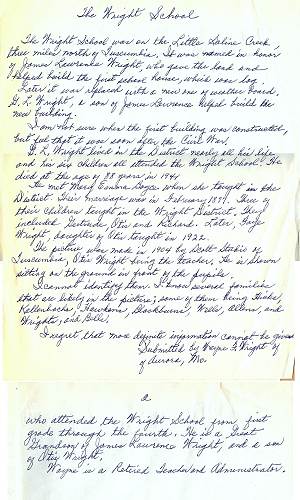 The Wright School
The Wright School was on the Little Saline Creek,
three miles north of Tuscumbia. It was named in honor
of James Lawrence Wright, who gave the land and
helped build the first school house, which was log.
Later it was replaced with a new one of weather board.
G. L. Wright, a son of James Lawrence helped build the
new building.
I am not sure when the first building was constructed,
but feel that it was soon after the Civil War.
G. L. Wright lived in the District nearly all his life,
and his six children all attended the Wright School. He
died at the age of 88 years in 1941
He met Mary when she taught in the
District. Their marriage was in February 1879. Three of
their children taught in the Wright District. They
included Gertrude, Otis and Richard. Later, Faye
Wright, daughter of Otis taught in 1922.
The picture was made in 1904 by Scott of
Tuscumbia, Otis Wright being the teacher. He is shown
sitting on the ground in front of the pupils.
I cannot identify them. I know several families
that are likely in the picture; some of them being
Kallenbachs, Hawkens, Wells, Allens, and
Wrights, and Bells.
I regret that more definite information cannot be given
Submitted by Wayne G. Wright
of Aurora, Mo.
a
who attended the Wright School from first
grade through the fourth. He is a Great
Grandson of James Lawrence Wright, and a son
of Otis Wright.
Wayne is a Retired Teacher and Administrator.